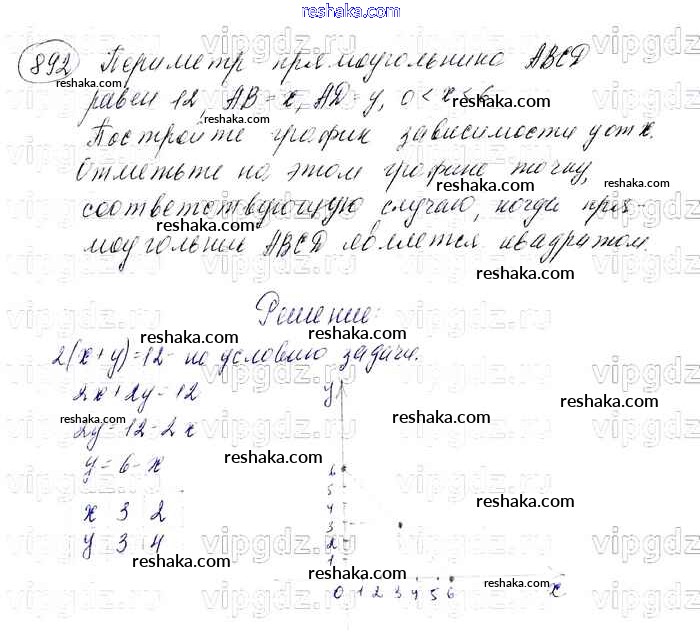 reshaka.com
892 Периметр прямоугольника ABCD
равен 12, AB = x, AD = y, 0 < x < 6.
Постройте график зависимости y от x.
Отметьте на этом графике точку,
соответствующую случаю, когда пря-
моугольник ABCD является квадратом.
Решение:
2(x+y)=12 - по условию задачи.
2x+2y=12
2y=12-2x
y=6-x
x 3 2
y 3 4
y
6
5
4
3
2
1
0 1 2 3 4 5 6 x